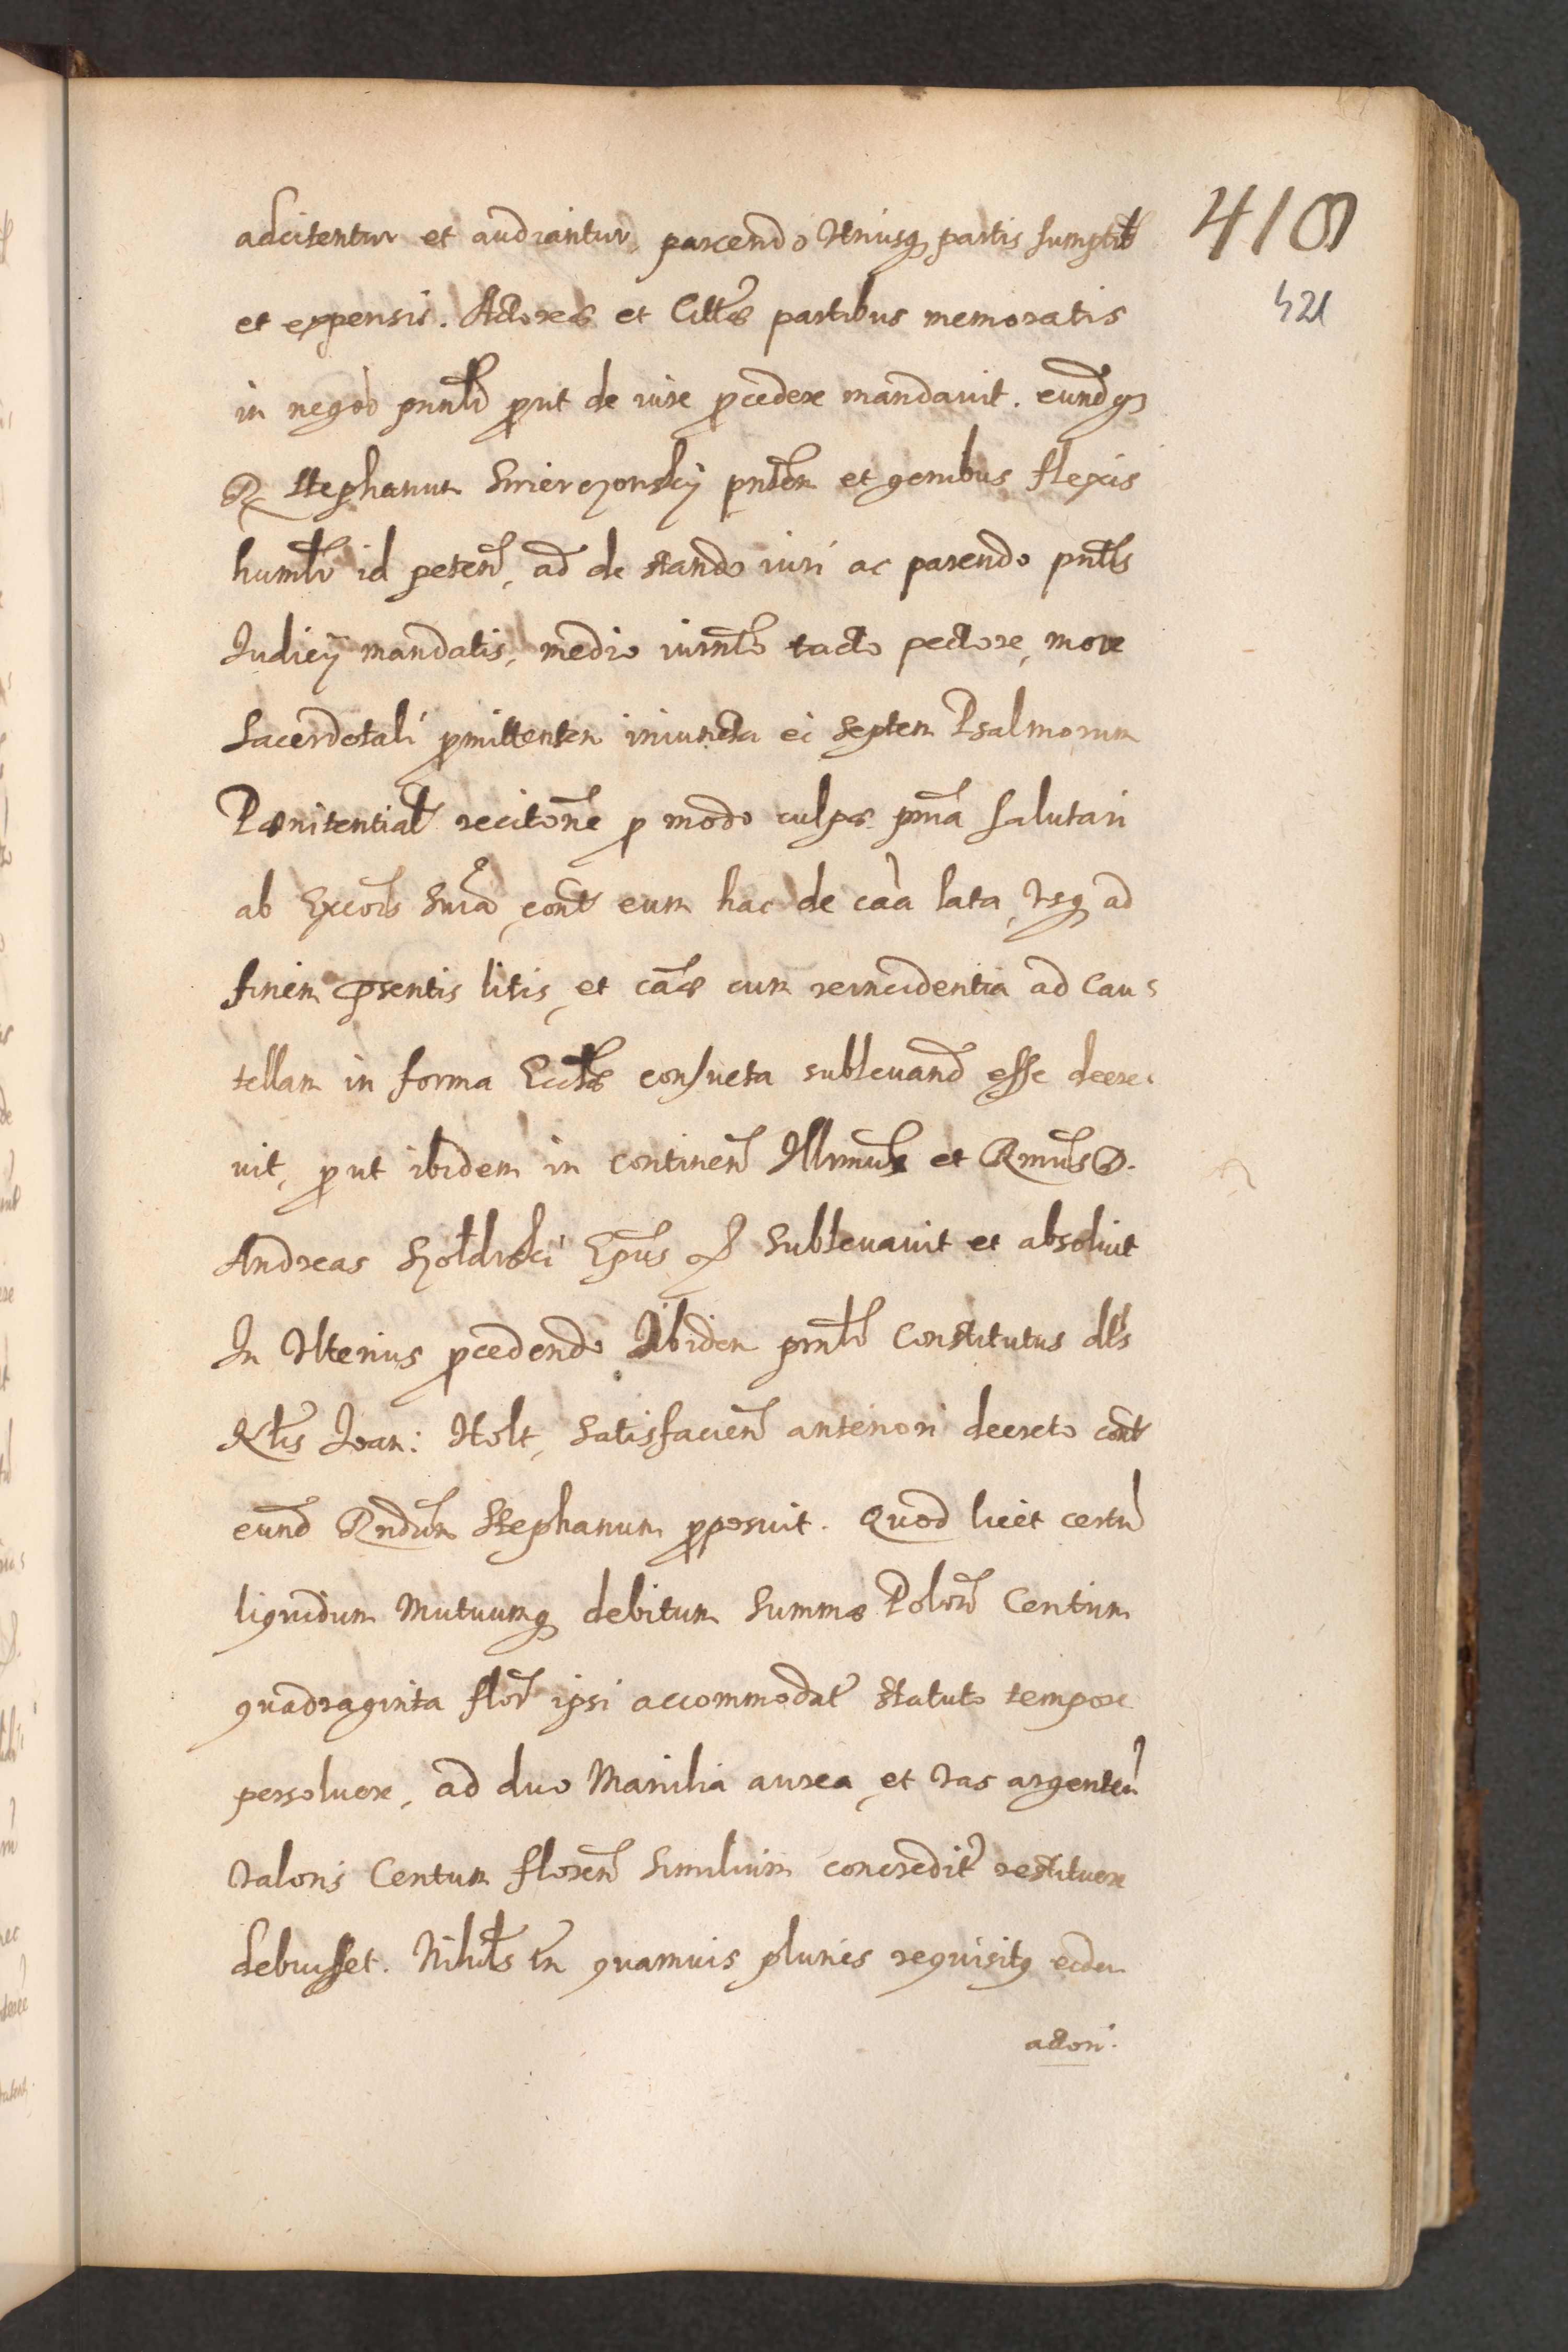 410
421
adcitentur et audiantur, parcendo Vtriusq partis sumptib
et expensis. Actores et Cittes partibus memoratis
in negoō pnnti put de iure pcedere mandauit. eundq
R Stephanum Swierczowskij pntem et genibus flexis
humlr id peten, ad de stando iuri ac parendo pntis
Iudicij mandatis, medio iurnto tacto pectore, more
Sacerdotali pmittentem iniuncta ei septem Psalmorum
Pænitential recitone p modo culpæ pnia salutari
ab Excois Snia cont eum hac de caa lata, Vsq ad
finem psentis litis, et cæ cum reincidentia ad Cau-
tellam in forma Ecclæ consueta subleuand esse decre-
uit, put ibidem in continen Illmus et Rmus D.
Andreas Szołdrski Epus subleuauit et absoluit
In Vlterius pcedendo Ibidem pnnlr Constitutus dls
Joan: Holt, satisfacien anteriori decreto cont
eund Rndum Stephanum pposuit. Quod licet certu
liquidum Mutuumq debitum summæ Polon Centum
quadraginta flor ipsi accommodat statuto tempore
persoluere, ad duo Manilia aurea, et Vas argenteu
Valoris Centum floren similium concredit restituere
debuisset. Nihils tn quamuis pluries requisitq eidem
actori.